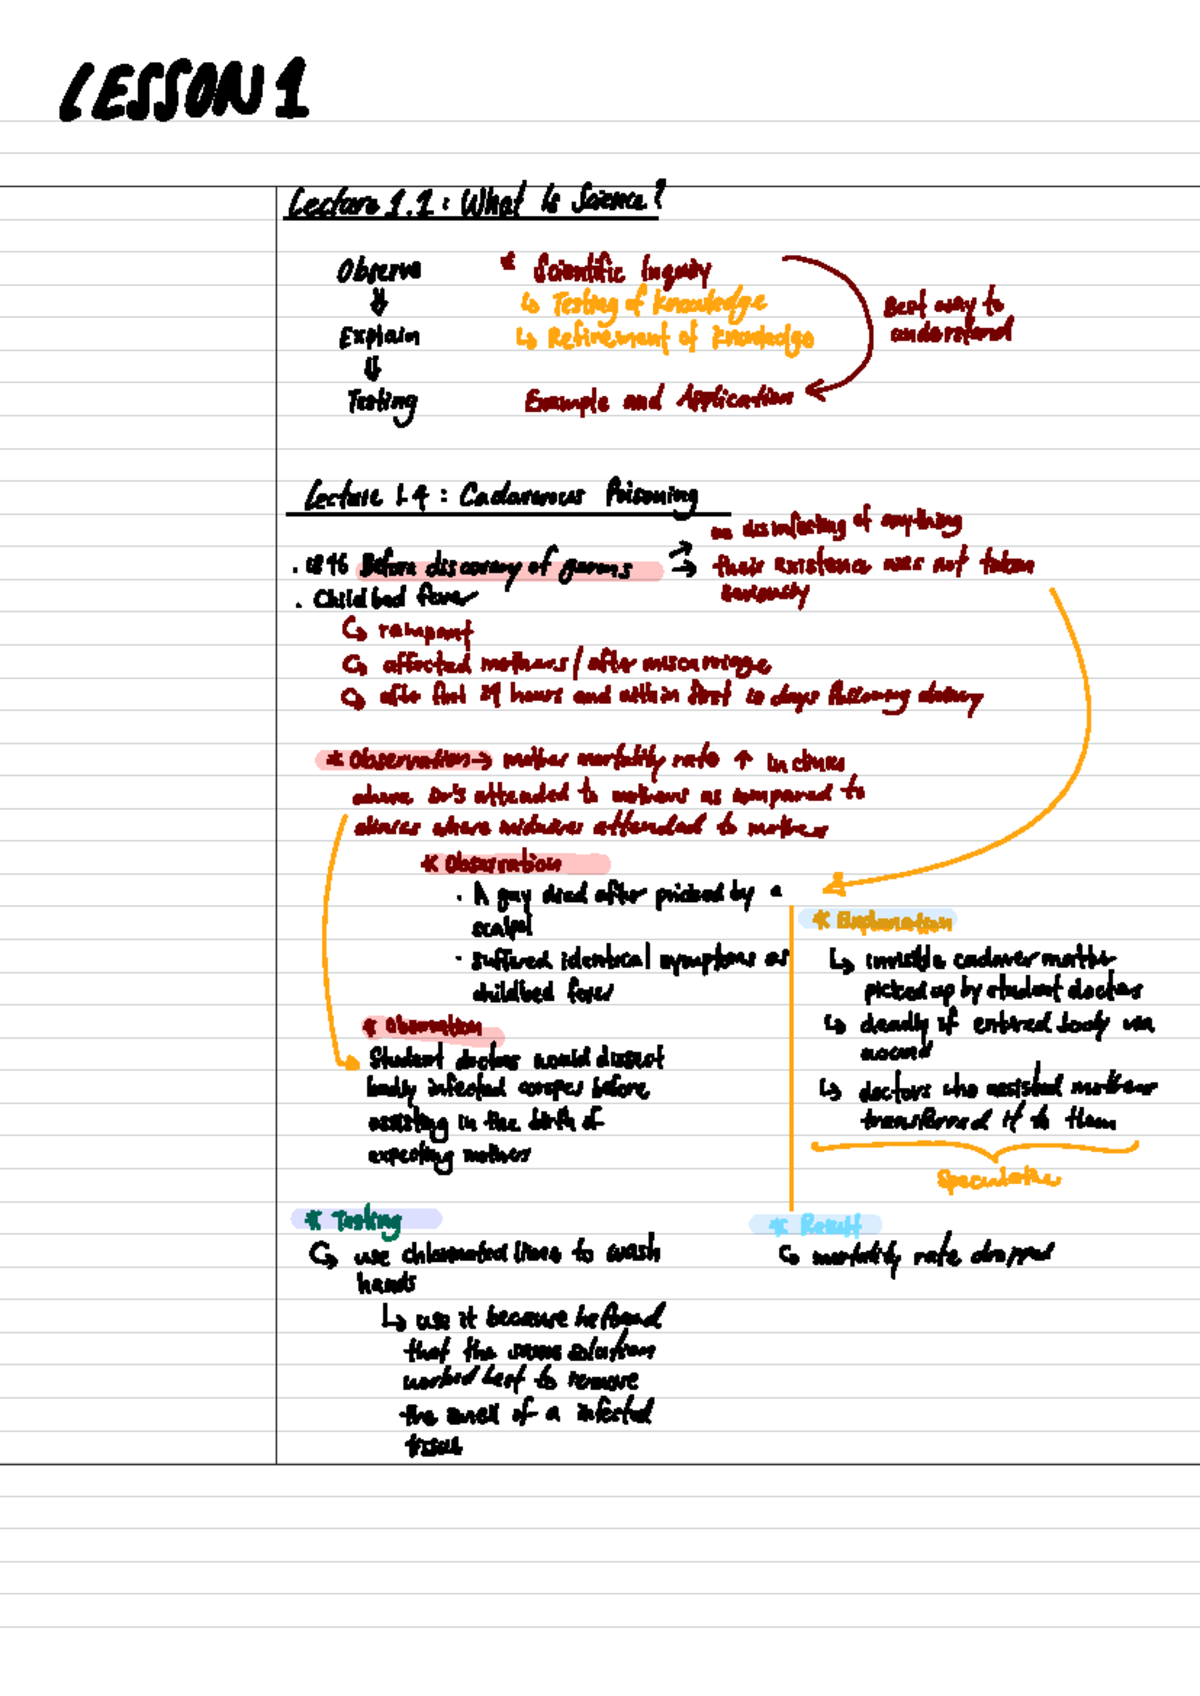 LESSON 1
Lecture 1.1 : What Is Science?
Observe
Explain
Testing
* Scientific Inquiry
Testing of knowledge
Refinement of knowledge
Example and Application
Best way to
understand
Lecture 1.4 : Cadaverous Poisoning
. 1846 Before discovery of germs
no disinfecting of anything
their existence was not taken
seriously
. Childbed fever
rampant
affected mothers / after miscarriage
after first 24 hours and within first 10 days following delivery
* Observation → mother mortality rate ↑ in clinics
where Dr's attended to mothers as compared to
clinics where midwives attended to mothers
* Observation
· A guy died after pricked by a
scalpel
· suffered identical symptoms as
childbed fever
* Observation
Student doctors would dissect
badly infected corpses before
assisting in the birth of
expecting mothers
* Explanation
invisible cadaver matter
picked up by student doctors
deadly if entered body via
wound
doctors who assisted mothers
transferred it to them
Speculative
* Testing
use chlorinated lime to wash
hands
use it because he found
that the same solution
worked best to remove
the smell of a infected
tissue
* Result
mortality rate dropped